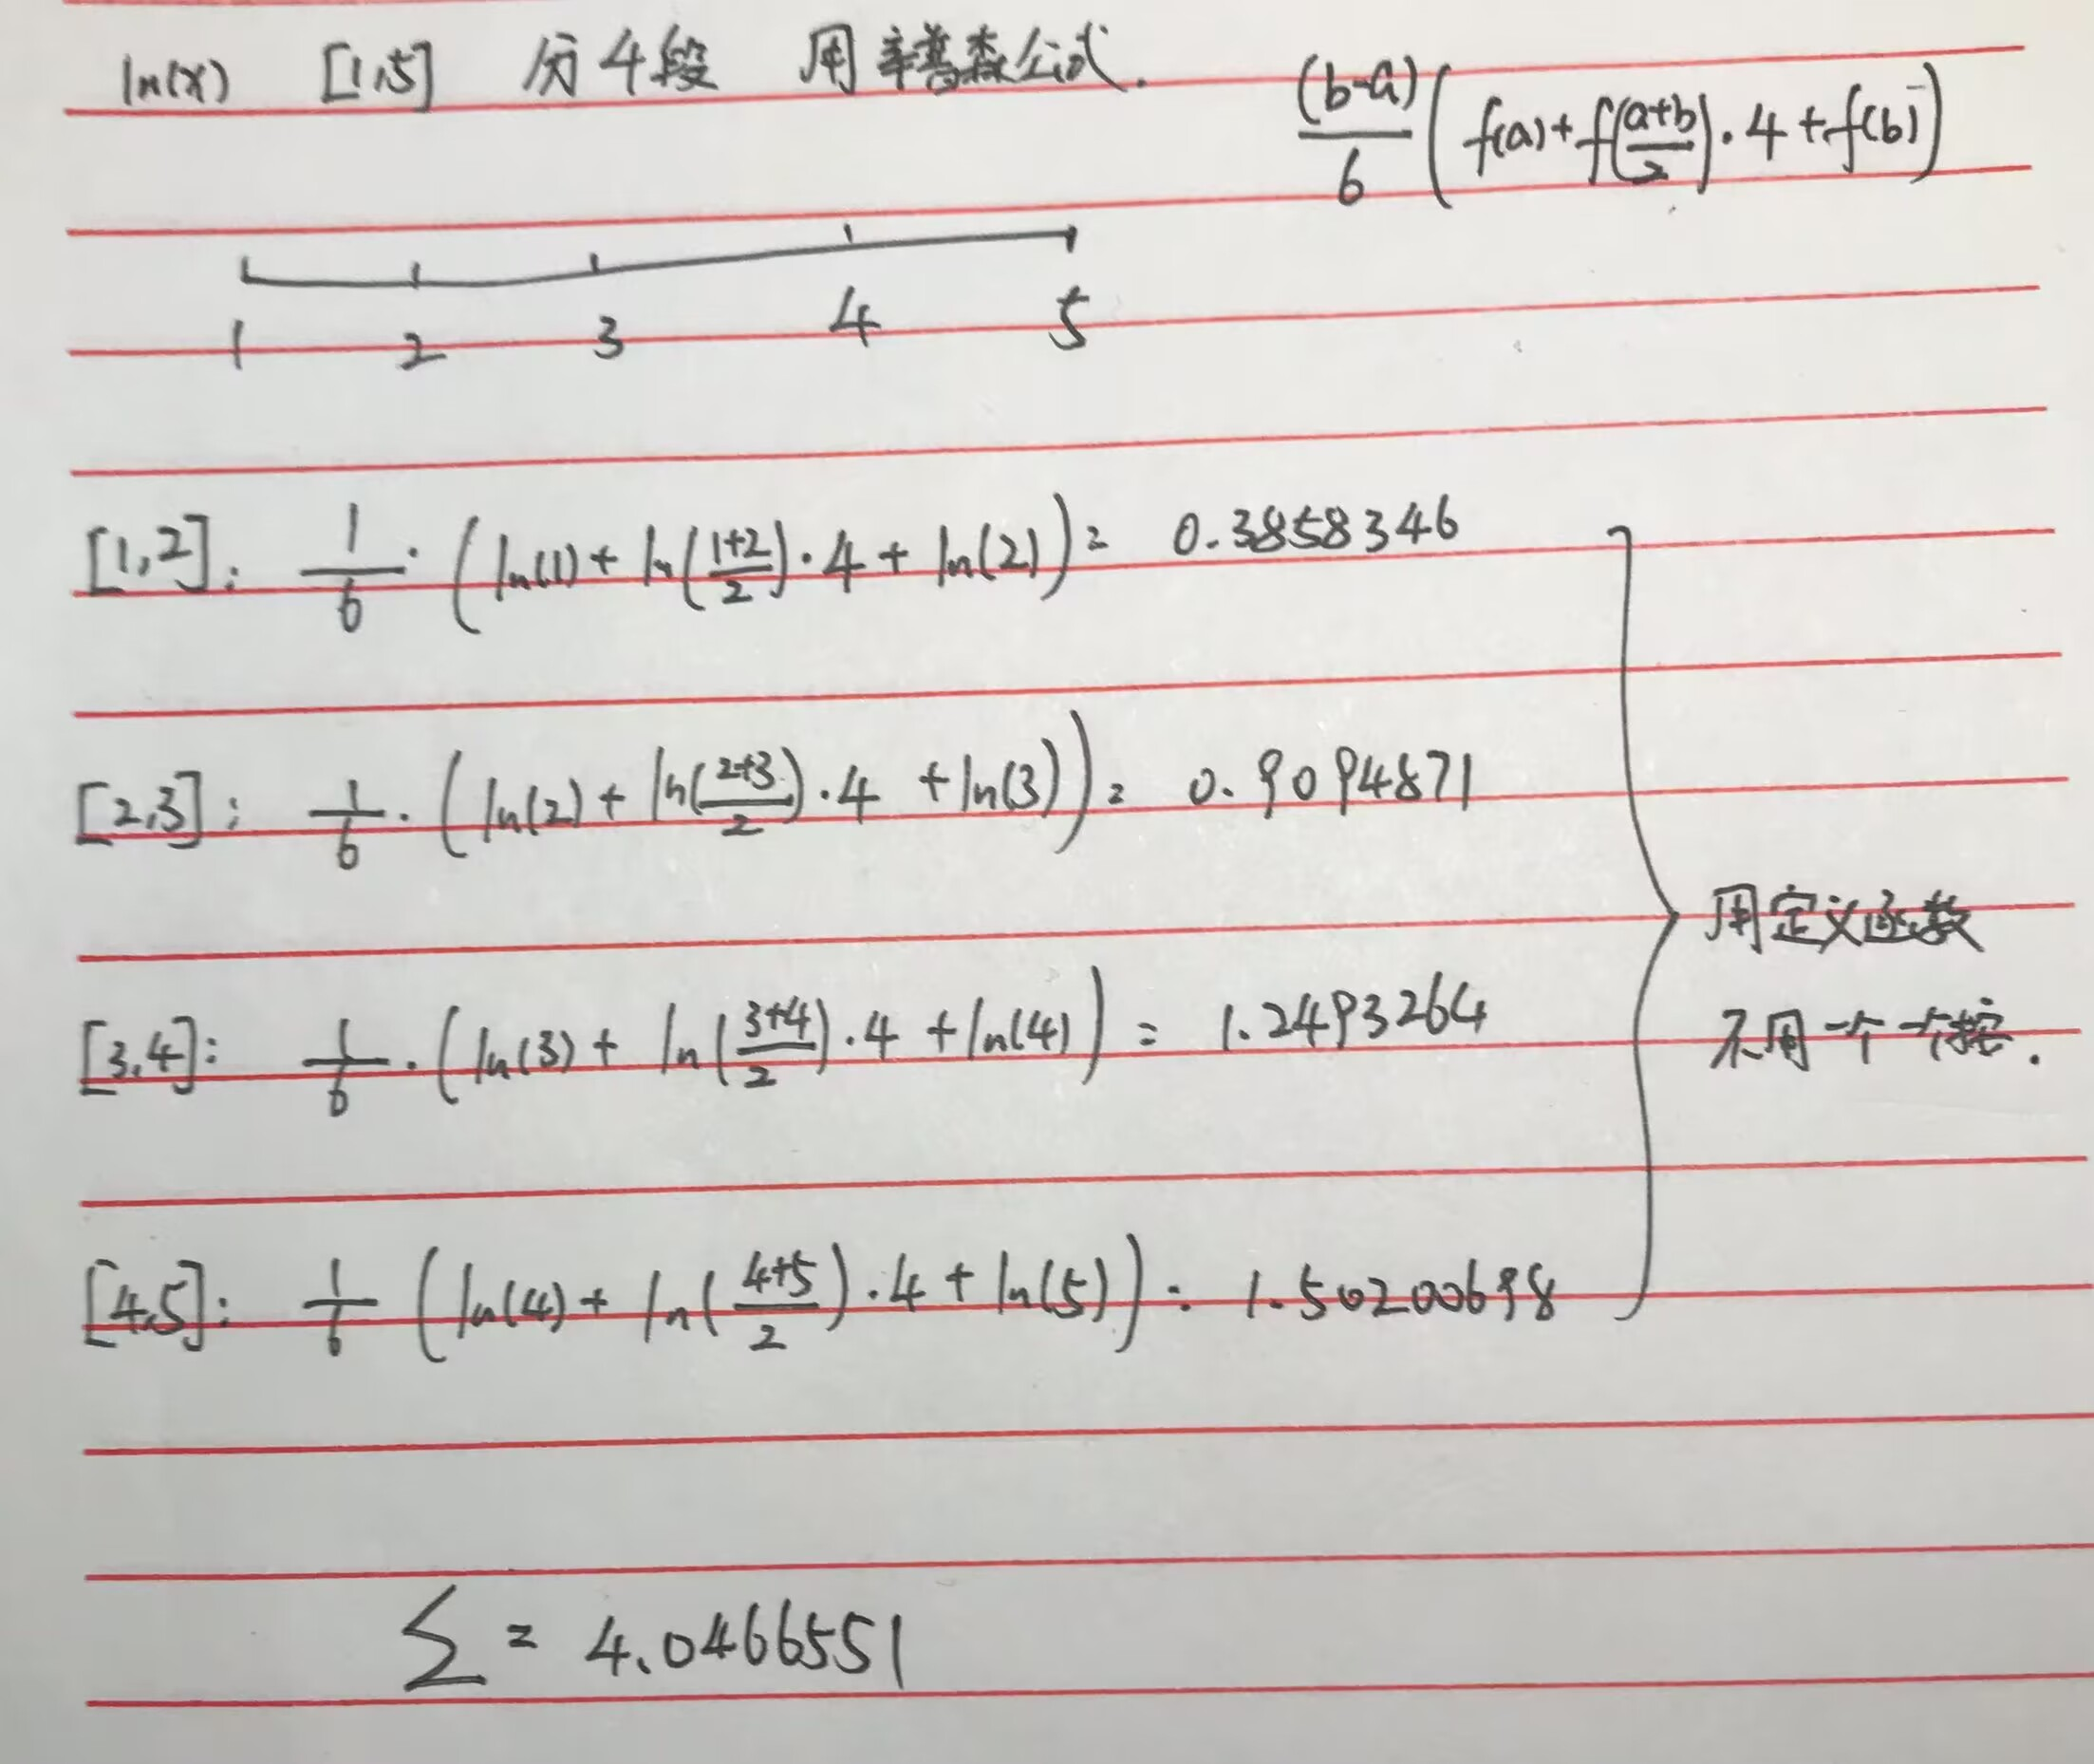 ln(x) [1,5] 分4段 用辛普森公式. (b-a)/6 (f(a)+f((a+b)/2)·4+f(b))
1 2 3 4 5
[1,2]: 1/6·(ln(1)+ln((1+2)/2)·4+ln(2))= 0.3858346
[2,3]: 1/6·(ln(2)+ln((2+3)/2)·4+ln(3))= 0.9094871
用定义函数
[3,4]: 1/6·(ln(3)+ln((3+4)/2)·4+ln(4))= 1.2493264
不用一个一个按.
[4,5]: 1/6(ln(4)+ln((4+5)/2)·4+ln(5))= 1.50200698
Σ= 4.0466551